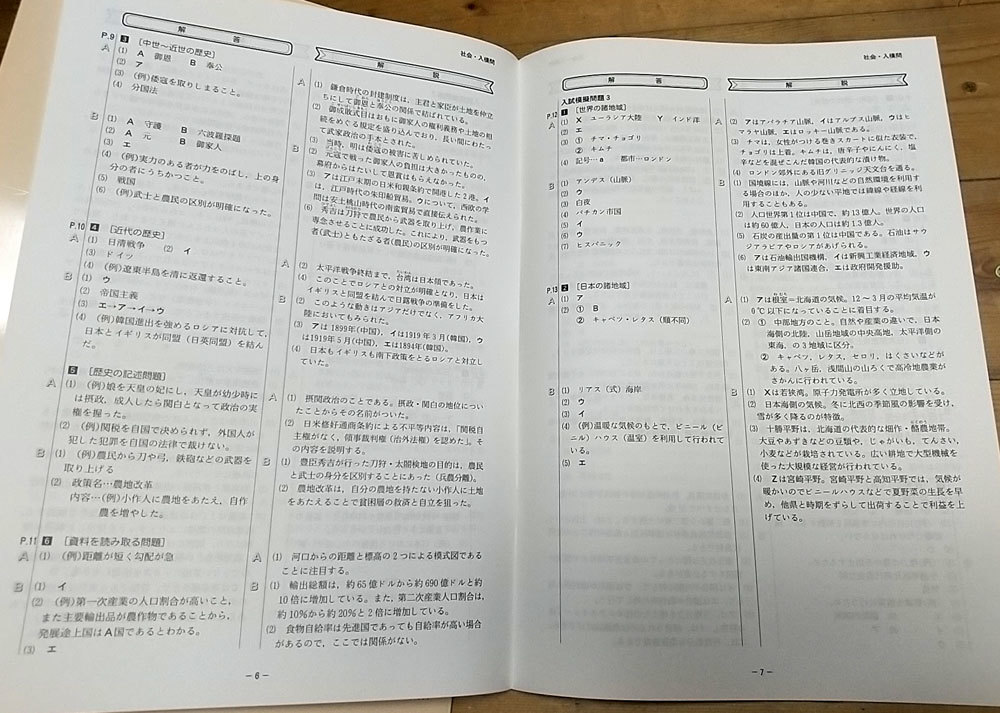 社会・入模問
解答
P.9 3 [中世~近世の歴史]
A (1) A 御恩 B 奉公
(2) ア
(3) (例)倭寇を取りしまること。
(4) 分国法
B (1) A 守護 B 六波羅探題
(2) A 元 B 御家人
(3) エ
(4) (例)実力のある者が力をのばし，上の身
分の者にうちかつこと。
(5) 戦国
(6) (例)武士と農民の区別が明確になった。
P.10 4 [近代の歴史]
A (1) 日清戦争 (2) イ
(3) ドイツ
(4) (例)遼東半島を清に返還すること。
B (1) ウ
(2) 帝国主義
(3) エ→ア→イ→ウ
(4) (例)韓国進出を強めるロシアに対抗して，
日本とイギリスが同盟(日英同盟)を結ん
だ。
5 [歴史の記述問題]
A (1) (例)娘を天皇の妃にし，天皇が幼少時に
は摂政，成人したら関白となって政治の実
権を握った。
(2) (例)関税を自国で決められず，外国人が
犯した犯罪を自国の法律で裁けない。
B (1) (例)農民から刀や弓，鉄砲などの武器を
取り上げる
(2) 政策名…農地改革
内容…(例)小作人に農地をあたえ，自作
農を増やした。
P.11 6 [資料を読み取る問題]
A (1) (例)距離が短く勾配が急
B (1) イ
(2) (例)第一次産業の人口割合が高いこと，
また主要輸出品が農作物であることから，
発展途上国はA国であるとわかる。
(3) エ
解説
A (1) 鎌倉時代の封建制度は，主君と家臣が土地を仲立
ちにして御恩と奉公の関係で結ばれている。
(2) 御成敗式目はおもに御家人の権利義務や土地の相
続をめぐる規定を盛り込んでおり，長い間にわたっ
て武家政治の手本とされた。
(3) 当時，明は倭寇の被害に苦しめられていた。
B (2) 元寇で戦った御家人の負担は大きかったものの，
幕府からはたいして恩賞はもらえなかった。
(3) アは江戸末期の日米和親条約で開港した2港。イ
は，江戸時代の朱印船貿易。ウについて，西欧の学
問は安土桃山時代の南蛮貿易で直接伝えられた。
(6) 秀吉は刀狩で農民から武器を取り上げ，農作業に
専念させることに成功した。これにより，武器をもつ
者(武士)ともたざる者(農民)の区別が明確になった。
A (2) 太平洋戦争終結まで，台湾は日本領であった。
(4) このことでロシアとの対立が明確となり，日本は
イギリスと同盟を結んで日露戦争の準備をした。
B (2) このような動きはアジアだけでなく，アフリカ大
陸においてもみられた。
(3) アは1899年(中国)，イは1919年3月(韓国)，ウ
は1919年5月(中国)，エは1894年(韓国)。
(4) 日本もイギリスも南下政策をとるロシアと対立し
ていた。
A (1) 摂関政治のことである。摂政・関白の地位につい
たことからその名前がついた。
(2) 日米修好通商条約による不平等内容は，「関税自
主権がなく，領事裁判権(治外法権)を認めた」。そ
の内容を説明する。
B (1) 豊臣秀吉が行った刀狩・太閤検地の目的は，農民
と武士の身分を区別することにあった(兵農分離)。
(2) 農地改革は，自分の農地を持たない小作人に土地
をあたえることで貧困層の救済と自立を狙った。
A (1) 河口からの距離と標高の2つによる模式図である
ことに注目する。
B (1) 輸出総額は，約65億ドルから約690億ドルと約
10倍に増加している。また，第二次産業人口割合は，
約10%から約20%と2倍に増加している。
(2) 食物自給率は先進国であっても自給率が高い場合
があるので，ここでは関係がない。
－6－
社会・入模問
解答
入試模擬問題3
P.12 1 [世界の諸地域]
A (1) X ユーラシア大陸 Y インド洋
(2) エ
(3) ① チマ・チョゴリ
② キムチ
(4) 記号…a 都市…ロンドン
B (1) アンデス(山脈)
(2) ウ
(3) 白夜
(4) バチカン市国
(5) イ
(6) ウ
(7) ヒスパニック
P.13 2 [日本の諸地域]
A (1) ア
(2) ① B
② キャベツ・レタス(順不同)
B (1) リアス(式)海岸
(2) ウ
(3) イ
(4) (例)温暖な気候のもとで，ビニール(ビ
ニル)ハウス(温室)を利用して行われて
いる。
(5) エ
解説
A (2) アはアパラチア山脈，イはアルプス山脈，ウはヒ
マラヤ山脈，エはロッキー山脈である。
(3) チマは，女性がつける巻きスカートに似た衣装で，
チョゴリは上着。キムチは，唐辛子やにんにく，塩
辛などを混ぜこんだ韓国の代表的な漬け物。
(4) ロンドン郊外にある旧グリニッジ天文台を通る。
B (1) 国境線には，山脈や河川などの自然環境を利用す
る場合のほか，人の少ない平地では緯線や経線を利
用することもある。
(2) 人口世界第1位は中国で，約13億人。世界の人口
は約60億人，日本の人口は約1.3億人。
(5) 石炭の産出量の第1位は中国である。石油はサウ
ジアラビアやロシアがあげられる。
(6) アは石油輸出国機構，イは新興工業経済地域，ウ
は東南アジア諸国連合，エは政府開発援助。
A (1) アは根室=北海道の気候。12~3月の平均気温が
0℃以下になっていることに着目する。
(2) ① 中部地方のこと。自然や産業の違いで，日本
海側の北陸，山岳地域の中央高地，太平洋側の
東海，の3地域に区分。
② キャベツ，レタス，セロリ，はくさいなどが
ある。八ヶ岳，浅間山の山ろくで高冷地農業が
さかんに行われている。
B (1) Xは若狭湾。原子力発電所が多く立地している。
(2) 日本海側の気候。冬に北西の季節風の影響を受け，
雪が多く降るのが特徴。
(3) 十勝平野は，北海道の代表的な畑作・酪農地帯。
大豆やあずきなどの豆類や，じゃがいも，てんさい，
小麦などが栽培されている。広い耕地で大型機械を
使った大規模な経営が行われている。
(4) Zは宮崎平野。宮崎平野と高知平野では，気候が
暖かいのでビニールハウスなどで夏野菜の生長を早
め，他県と時期をずらして出荷することで利益を上
げている。
－7－